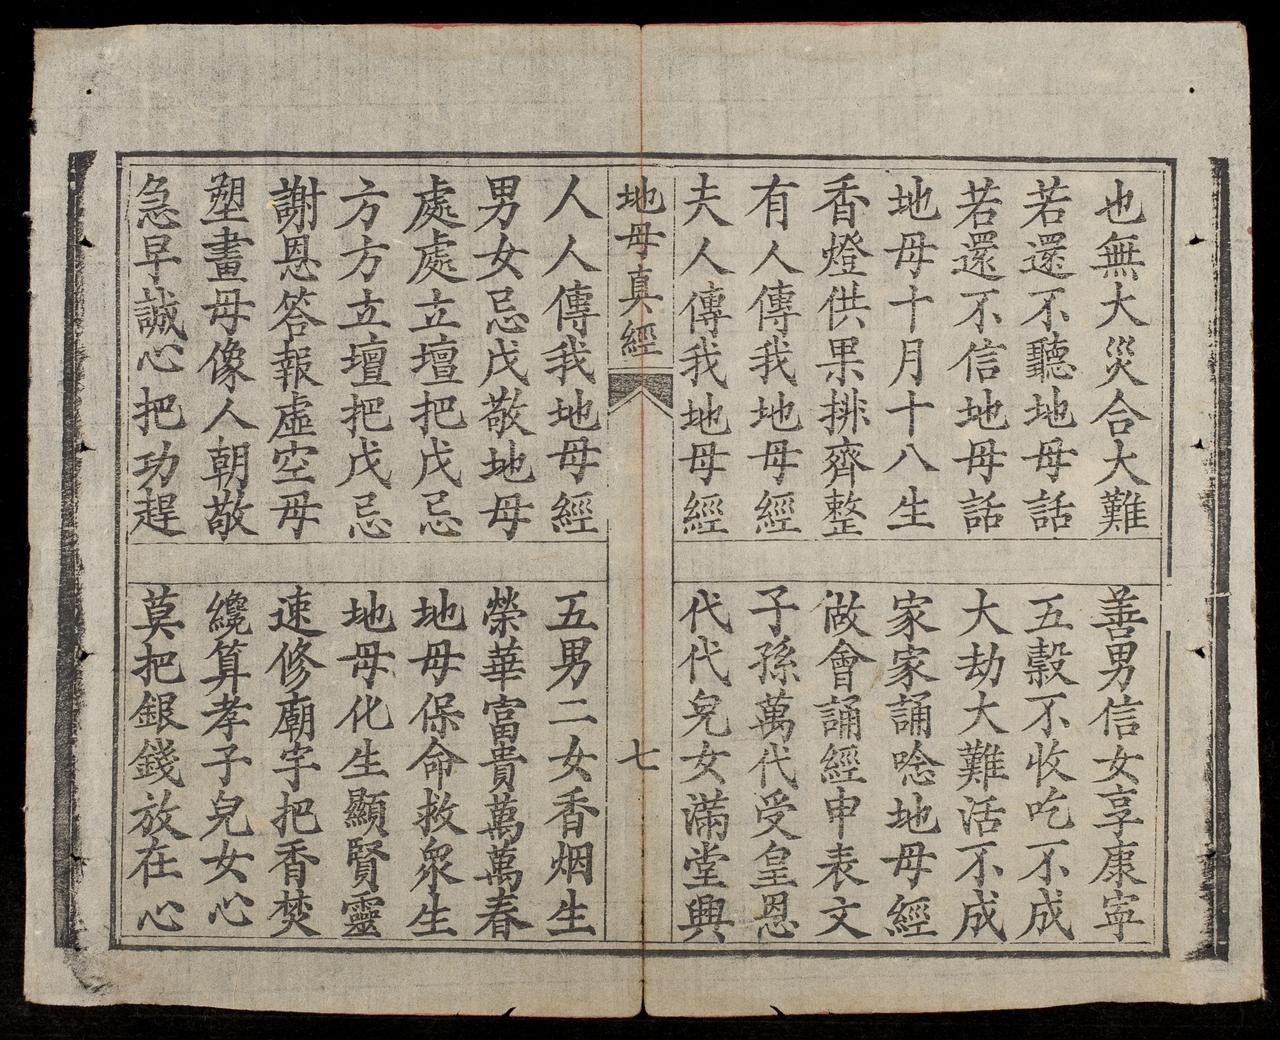 也無大災合大難
善男信女享康寍
若還不聽地母話
五穀不收吃不成
若還不信地母話
大劫大難活不成
地母十月十八生
家家誦唸地母經
香燈供果排齊整
做會誦經申表文
有人傳我地母經
子孫萬代受皇恩
夫人傳我地母經
代代兒女滿堂興
地母真經
七
人人傳我地母經
五男二女香烟生
男女忌戊敬地母
榮華富貴萬萬春
處處立壇把戊忌
地母保命救衆生
方方立壇把戊忌
地母化生顯賢靈
謝恩答報虛空母
速修廟宇把香焚
塑畫母像人朝敬
纔算孝子兒女心
急早誠心把功趕
莫把銀錢放在心